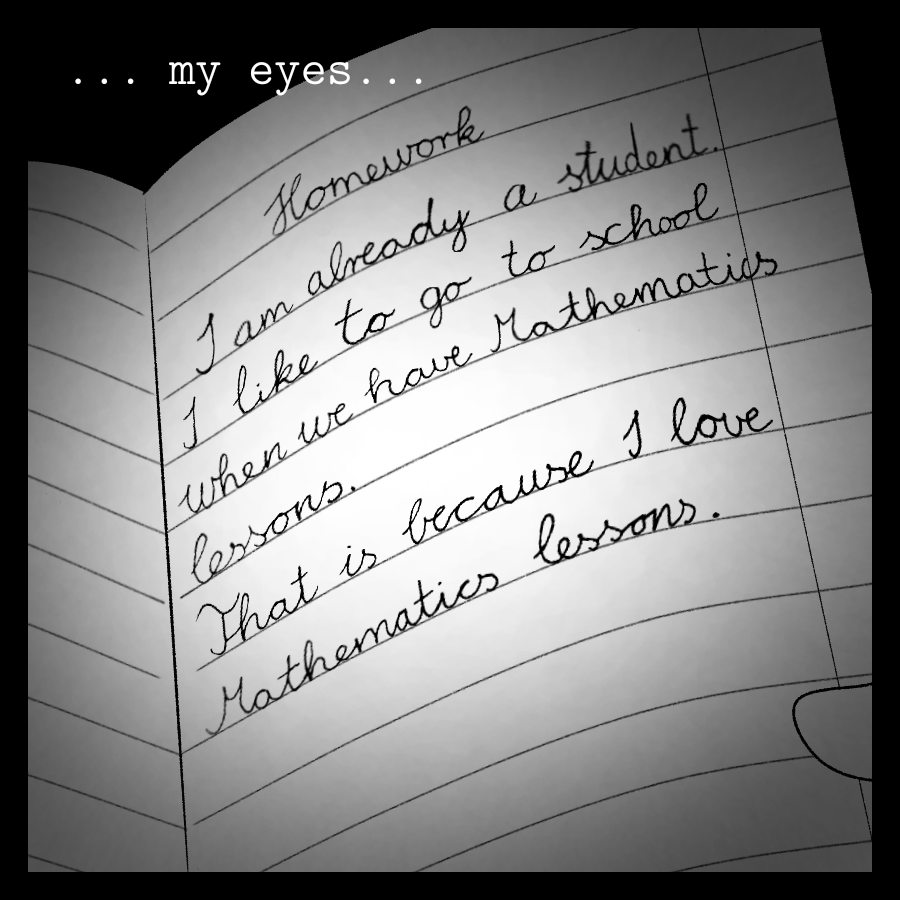 ... my eyes...
Homework
I am already a student.
I like to go to school
when we have Mathematics
lessons.
That is because I love
Mathematics lessons.